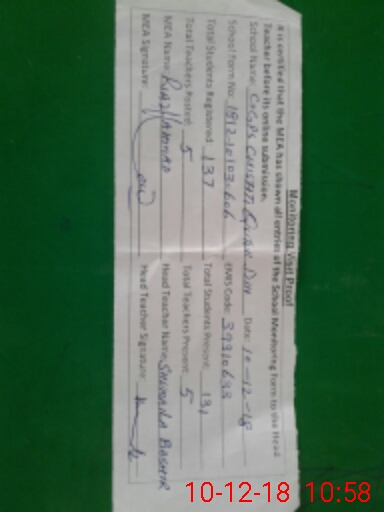 Monitoring Visit Proof
It is certified that the MEA has shown all entries of the School Monitoring Form to the Head
Teacher before its online submission.
School Name: Date: 10-12-18
School Form No: EMIS Code:
Total Students Registered: 137 Total Students Present: 131
Total Teachers Posted: 5 Total Teachers Present: 5
MEA Name: Riaz Ahmad Head Teacher Name: Shumaila Bashir
MEA Signature: Head Teacher Signature:
10-12-18 10:58